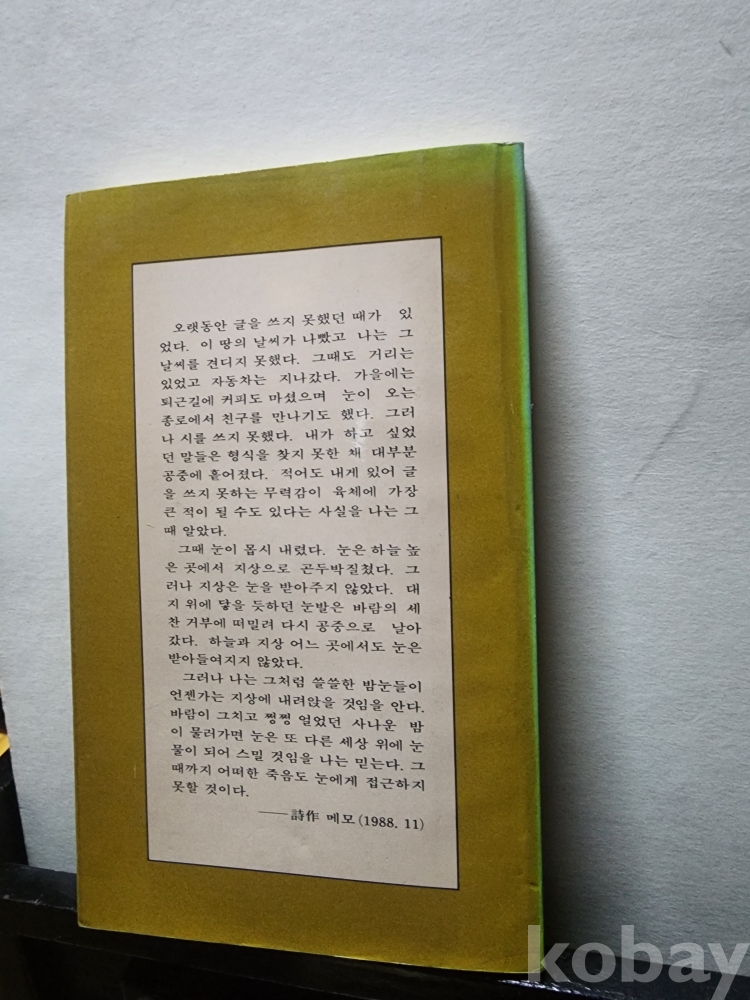 오랫동안 글을 쓰지 못했던 때가 있
었다. 이 땅의 날씨가 나빴고 나는 그
날씨를 견디지 못했다. 그때도 거리는
있었고 자동차는 지나갔다. 가을에는
퇴근길에 커피도 마셨으며 눈이 오는
종로에서 친구를 만나기도 했다. 그러
나 시를 쓰지 못했다. 내가 하고 싶었
던 말들은 형식을 찾지 못한 채 대부분
공중에 흩어졌다. 적어도 내게 있어 글
을 쓰지 못하는 무력감이 육체에 가장
큰 적이 될 수도 있다는 사실을 나는 그
때 알았다.
그때 눈이 몹시 내렸다. 눈은 하늘 높
은 곳에서 지상으로 곤두박질쳤다. 그
러나 지상은 눈을 받아주지 않았다. 대
지 위에 닿을 듯하던 눈발은 바람의 세
찬 거부에 떠밀려 다시 공중으로 날아
갔다. 하늘과 지상 어느 곳에서도 눈은
받아들여지지 않았다.
그러나 나는 그처럼 쓸쓸한 밤눈들이
언젠가는 지상에 내려앉을 것임을 안다.
바람이 그치고 쩡쩡 얼었던 사나운 밤
이 물러가면 눈은 또 다른 세상 위에 눈
물이 되어 스밀 것임을 나는 믿는다. 그
때까지 어떠한 죽음도 눈에게 접근하지
못할 것이다.
──詩作 메모(1988. 11)
kobay